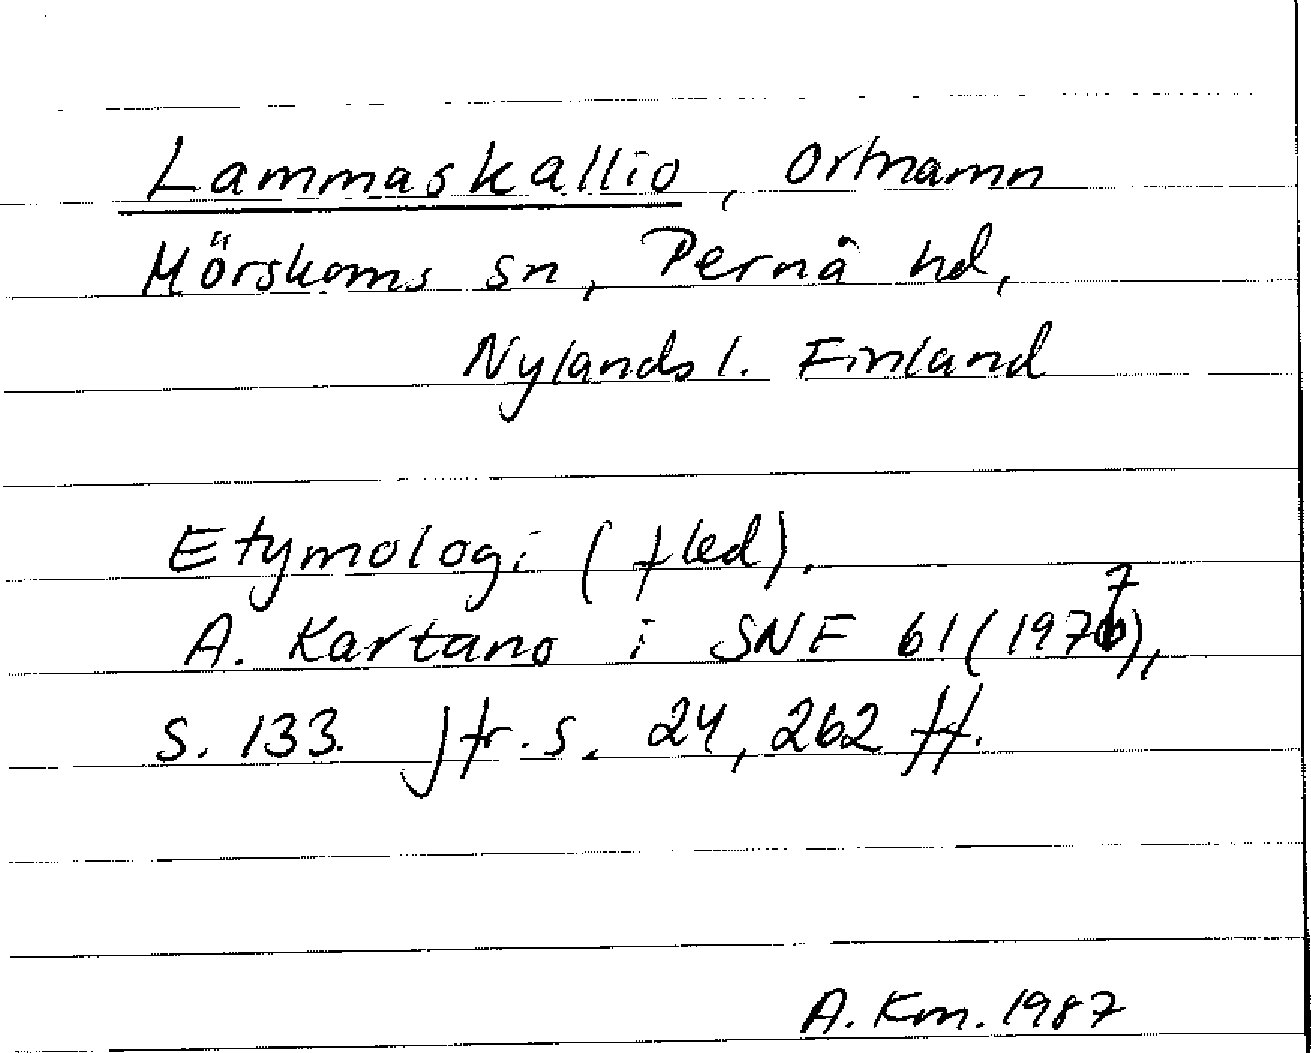 Lammaskallio, ortnamn
Mörskoms sn, Pernå hd,
Nylands l. Finland
Etymologi (fled).
A. Kartano i SNF 61 (1977),
s. 133. Jfr. s. 24, 262 ff.
A. Km. 1987